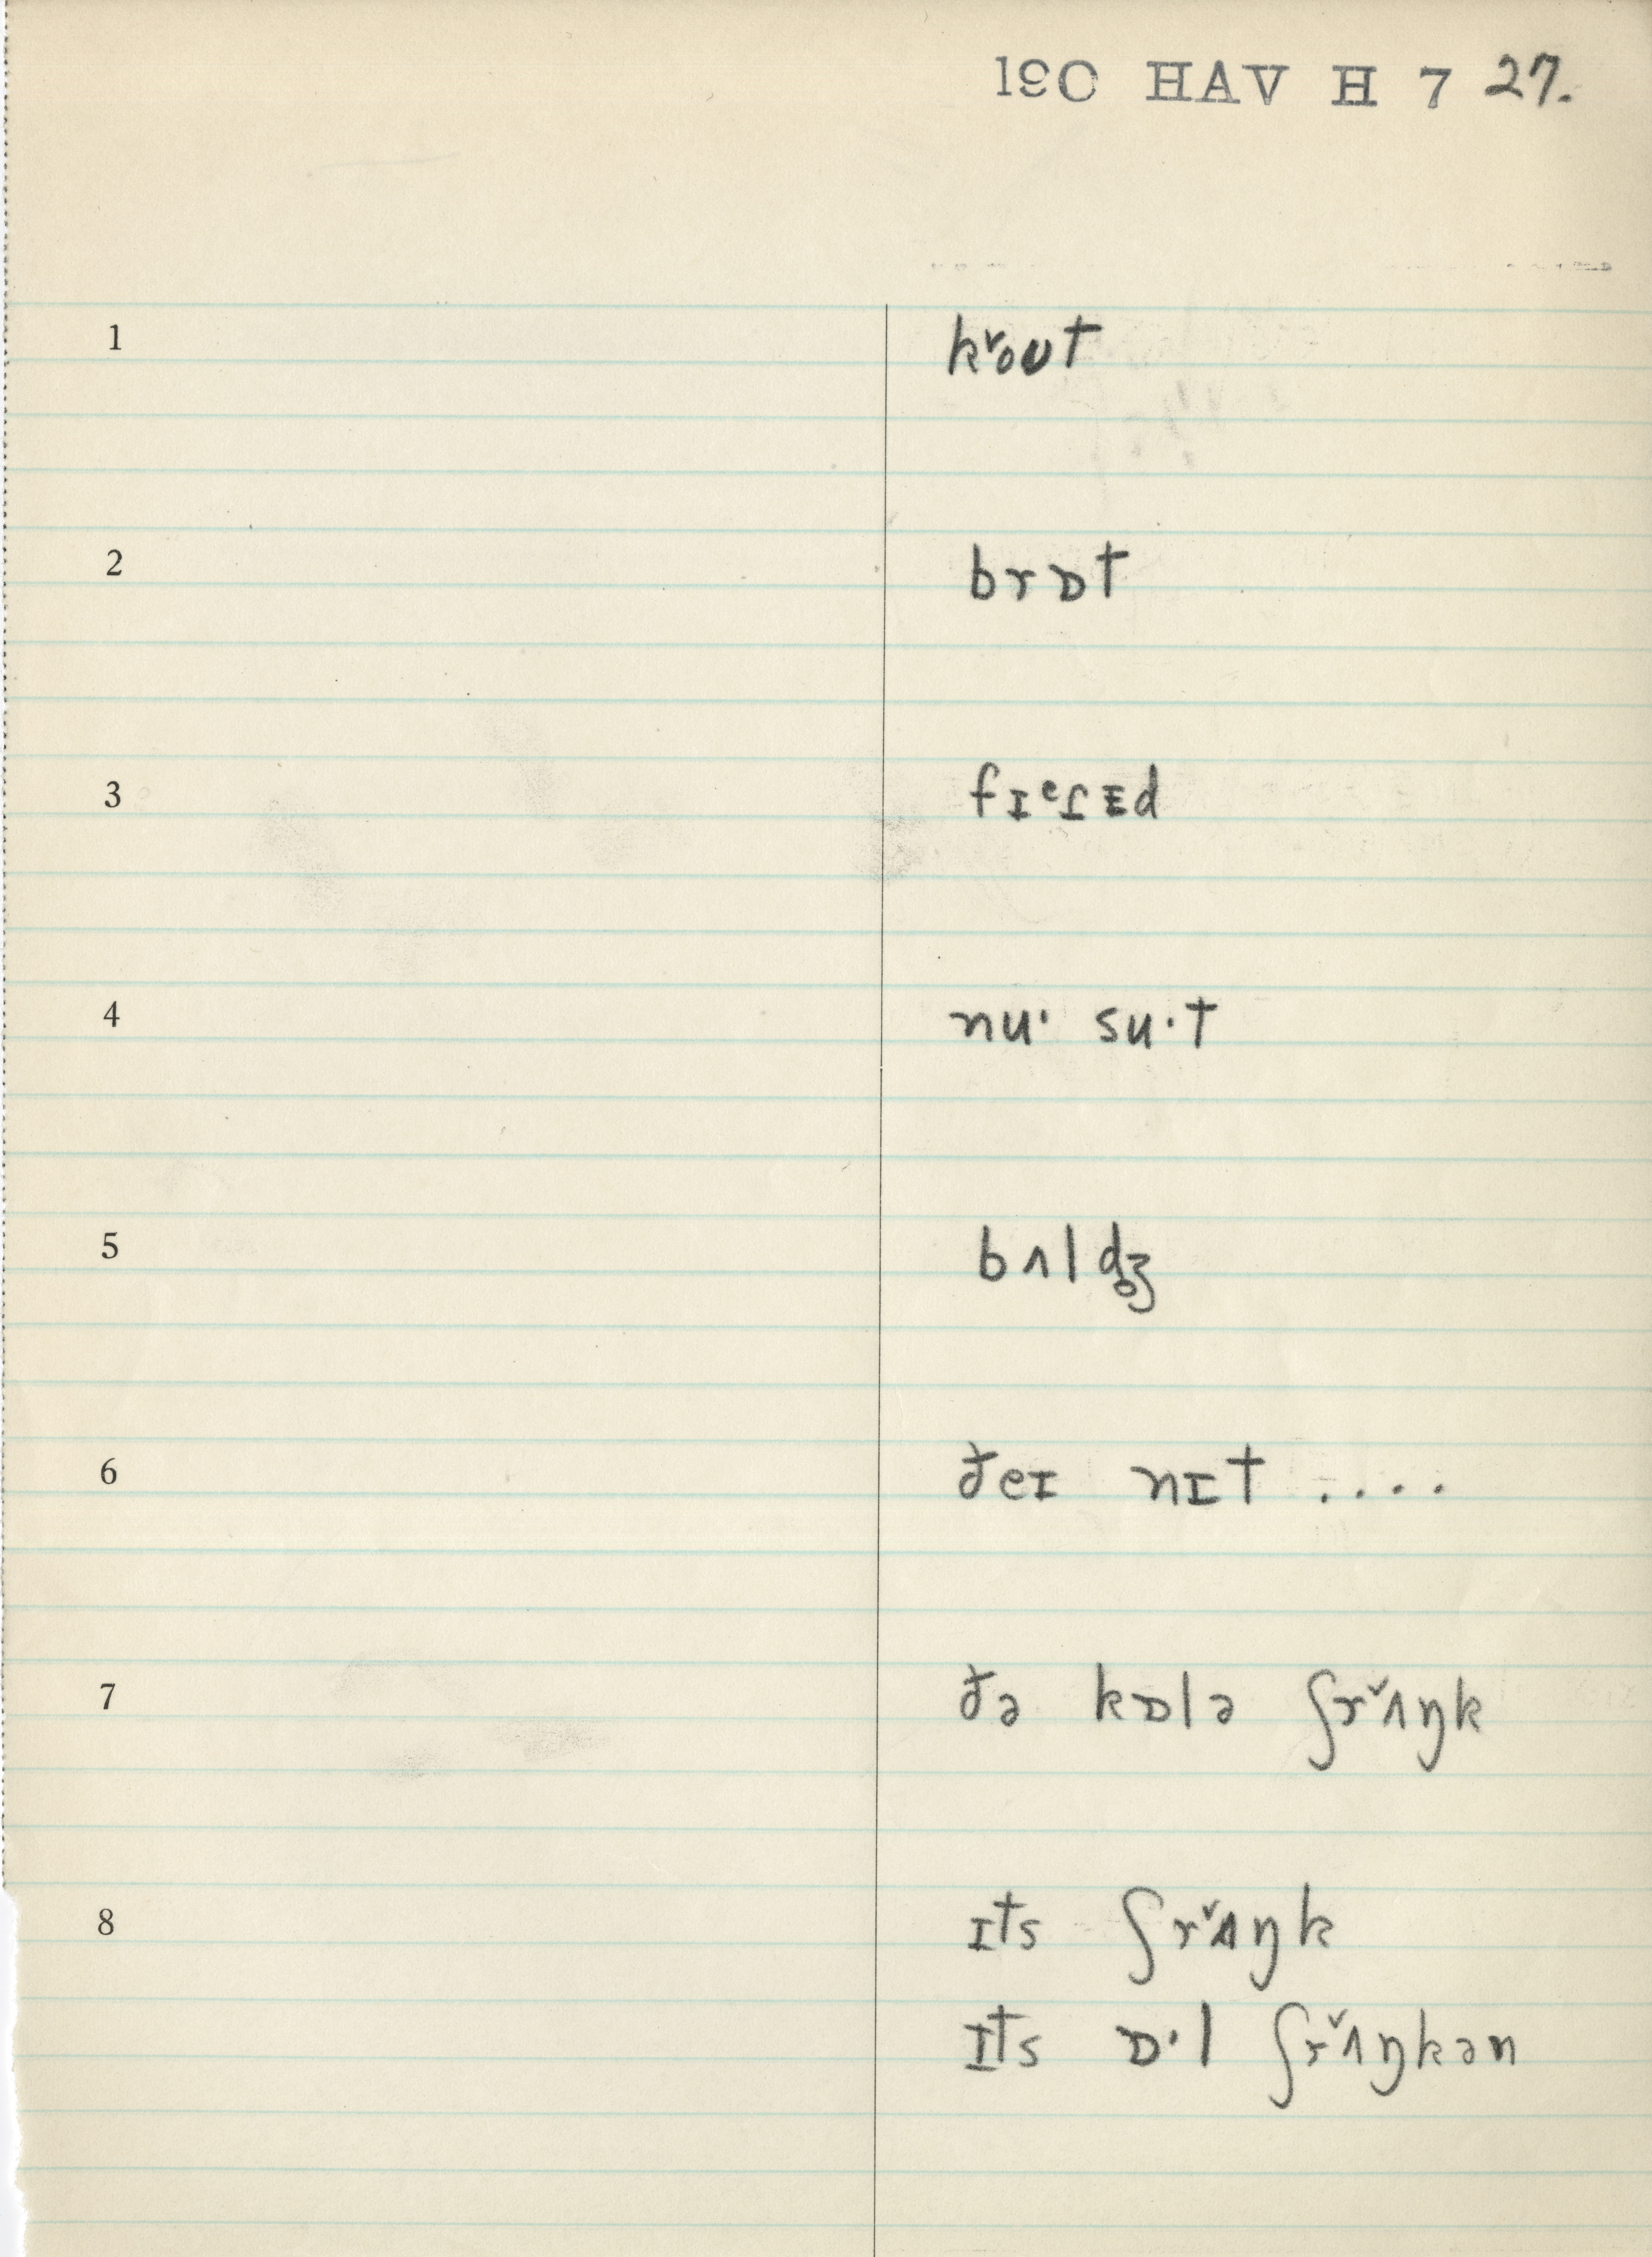 190 HAV H 7 27.
1 kʳout
2 brɒt
3 fɪᵉʃᴇd
4 nuˑ suˑt
5 bʌldʒ̥
6 ðeɪ nɪt ....
7 ðə kɒlə ʃrˇʌŋk
8 ɪts ʃrˇʌŋk
ɪts ɒˑl ʃrˇʌŋkən